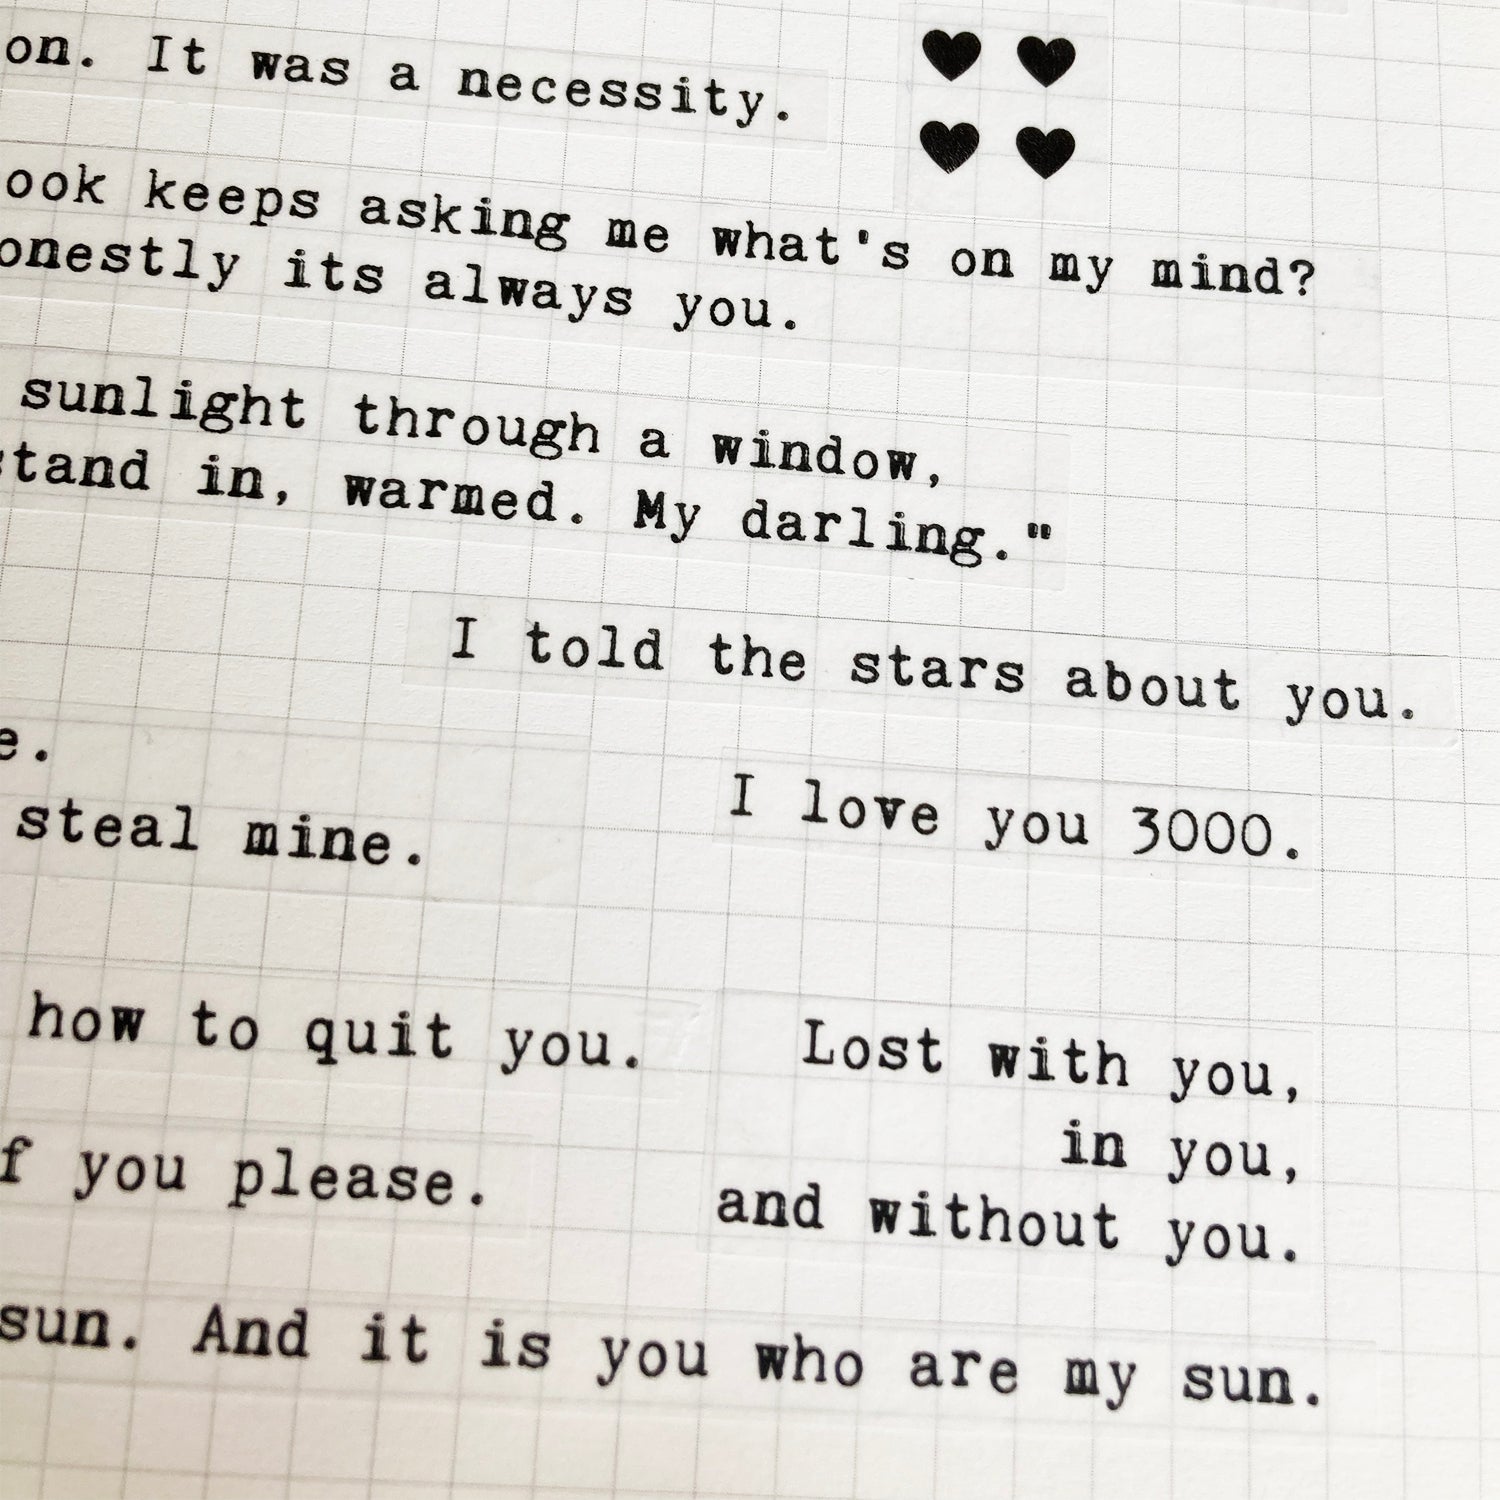 on. It was a necessity.
ook keeps asking me what's on my mind?
onestly its always you.
sunlight through a window,
stand in, warmed. My darling."
I told the stars about you.
e.
steal mine.
I love you 3000.
how to quit you.
Lost with you,
in you,
and without you.
f you please.
sun. And it is you who are my sun.